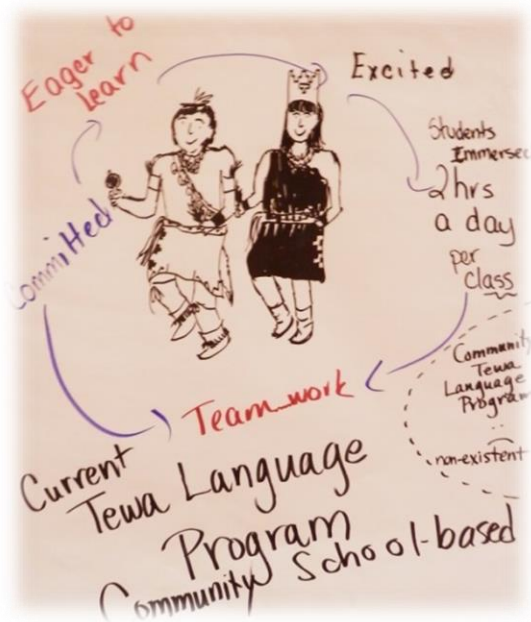 Eager to
learn
Excited
Students
Immersed
2 hrs
a day
per
class
Committed
Community
Tewa
Language
Program
..
non-existent
Team work
Current
Tewa Language
Program
Community School-based